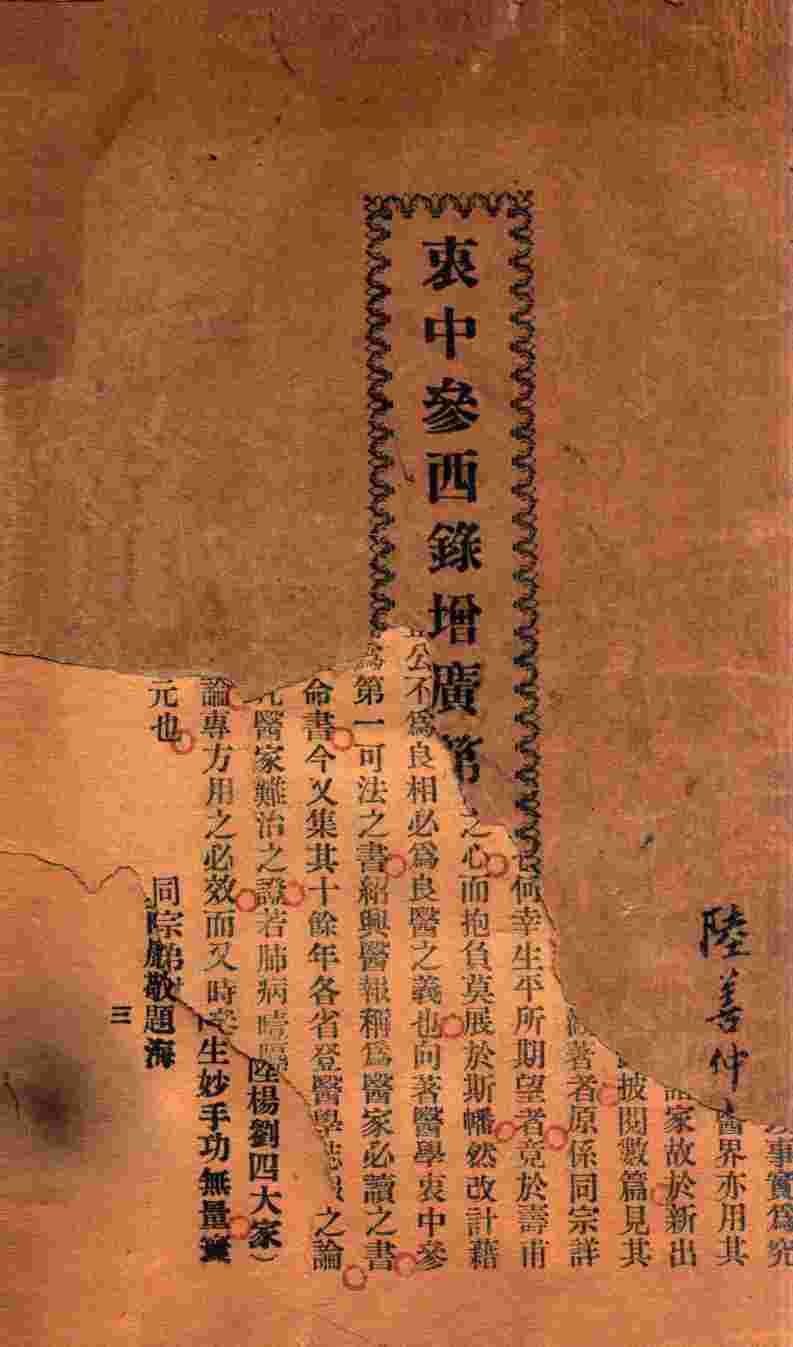 衷中參西錄增廣第
陸善仲
事實爲究
醫界亦用其
家故於新出
披閱數篇見其
著者原係同宗詳
何幸生平所期望者竟於壽甫
之心而抱負莫展於斯幡然改計藉
公不爲良相必爲良醫之義也向著醫學衷中參
爲第一可法之書紹興醫報稱爲醫家必讀之書
命書今又集其十餘年各省登醫學 之論
醫家難治之證若肺病 陸楊劉四大家）
論專方用之必效而又時 生妙手功無量實
元也
同宗弟 敬題海
三